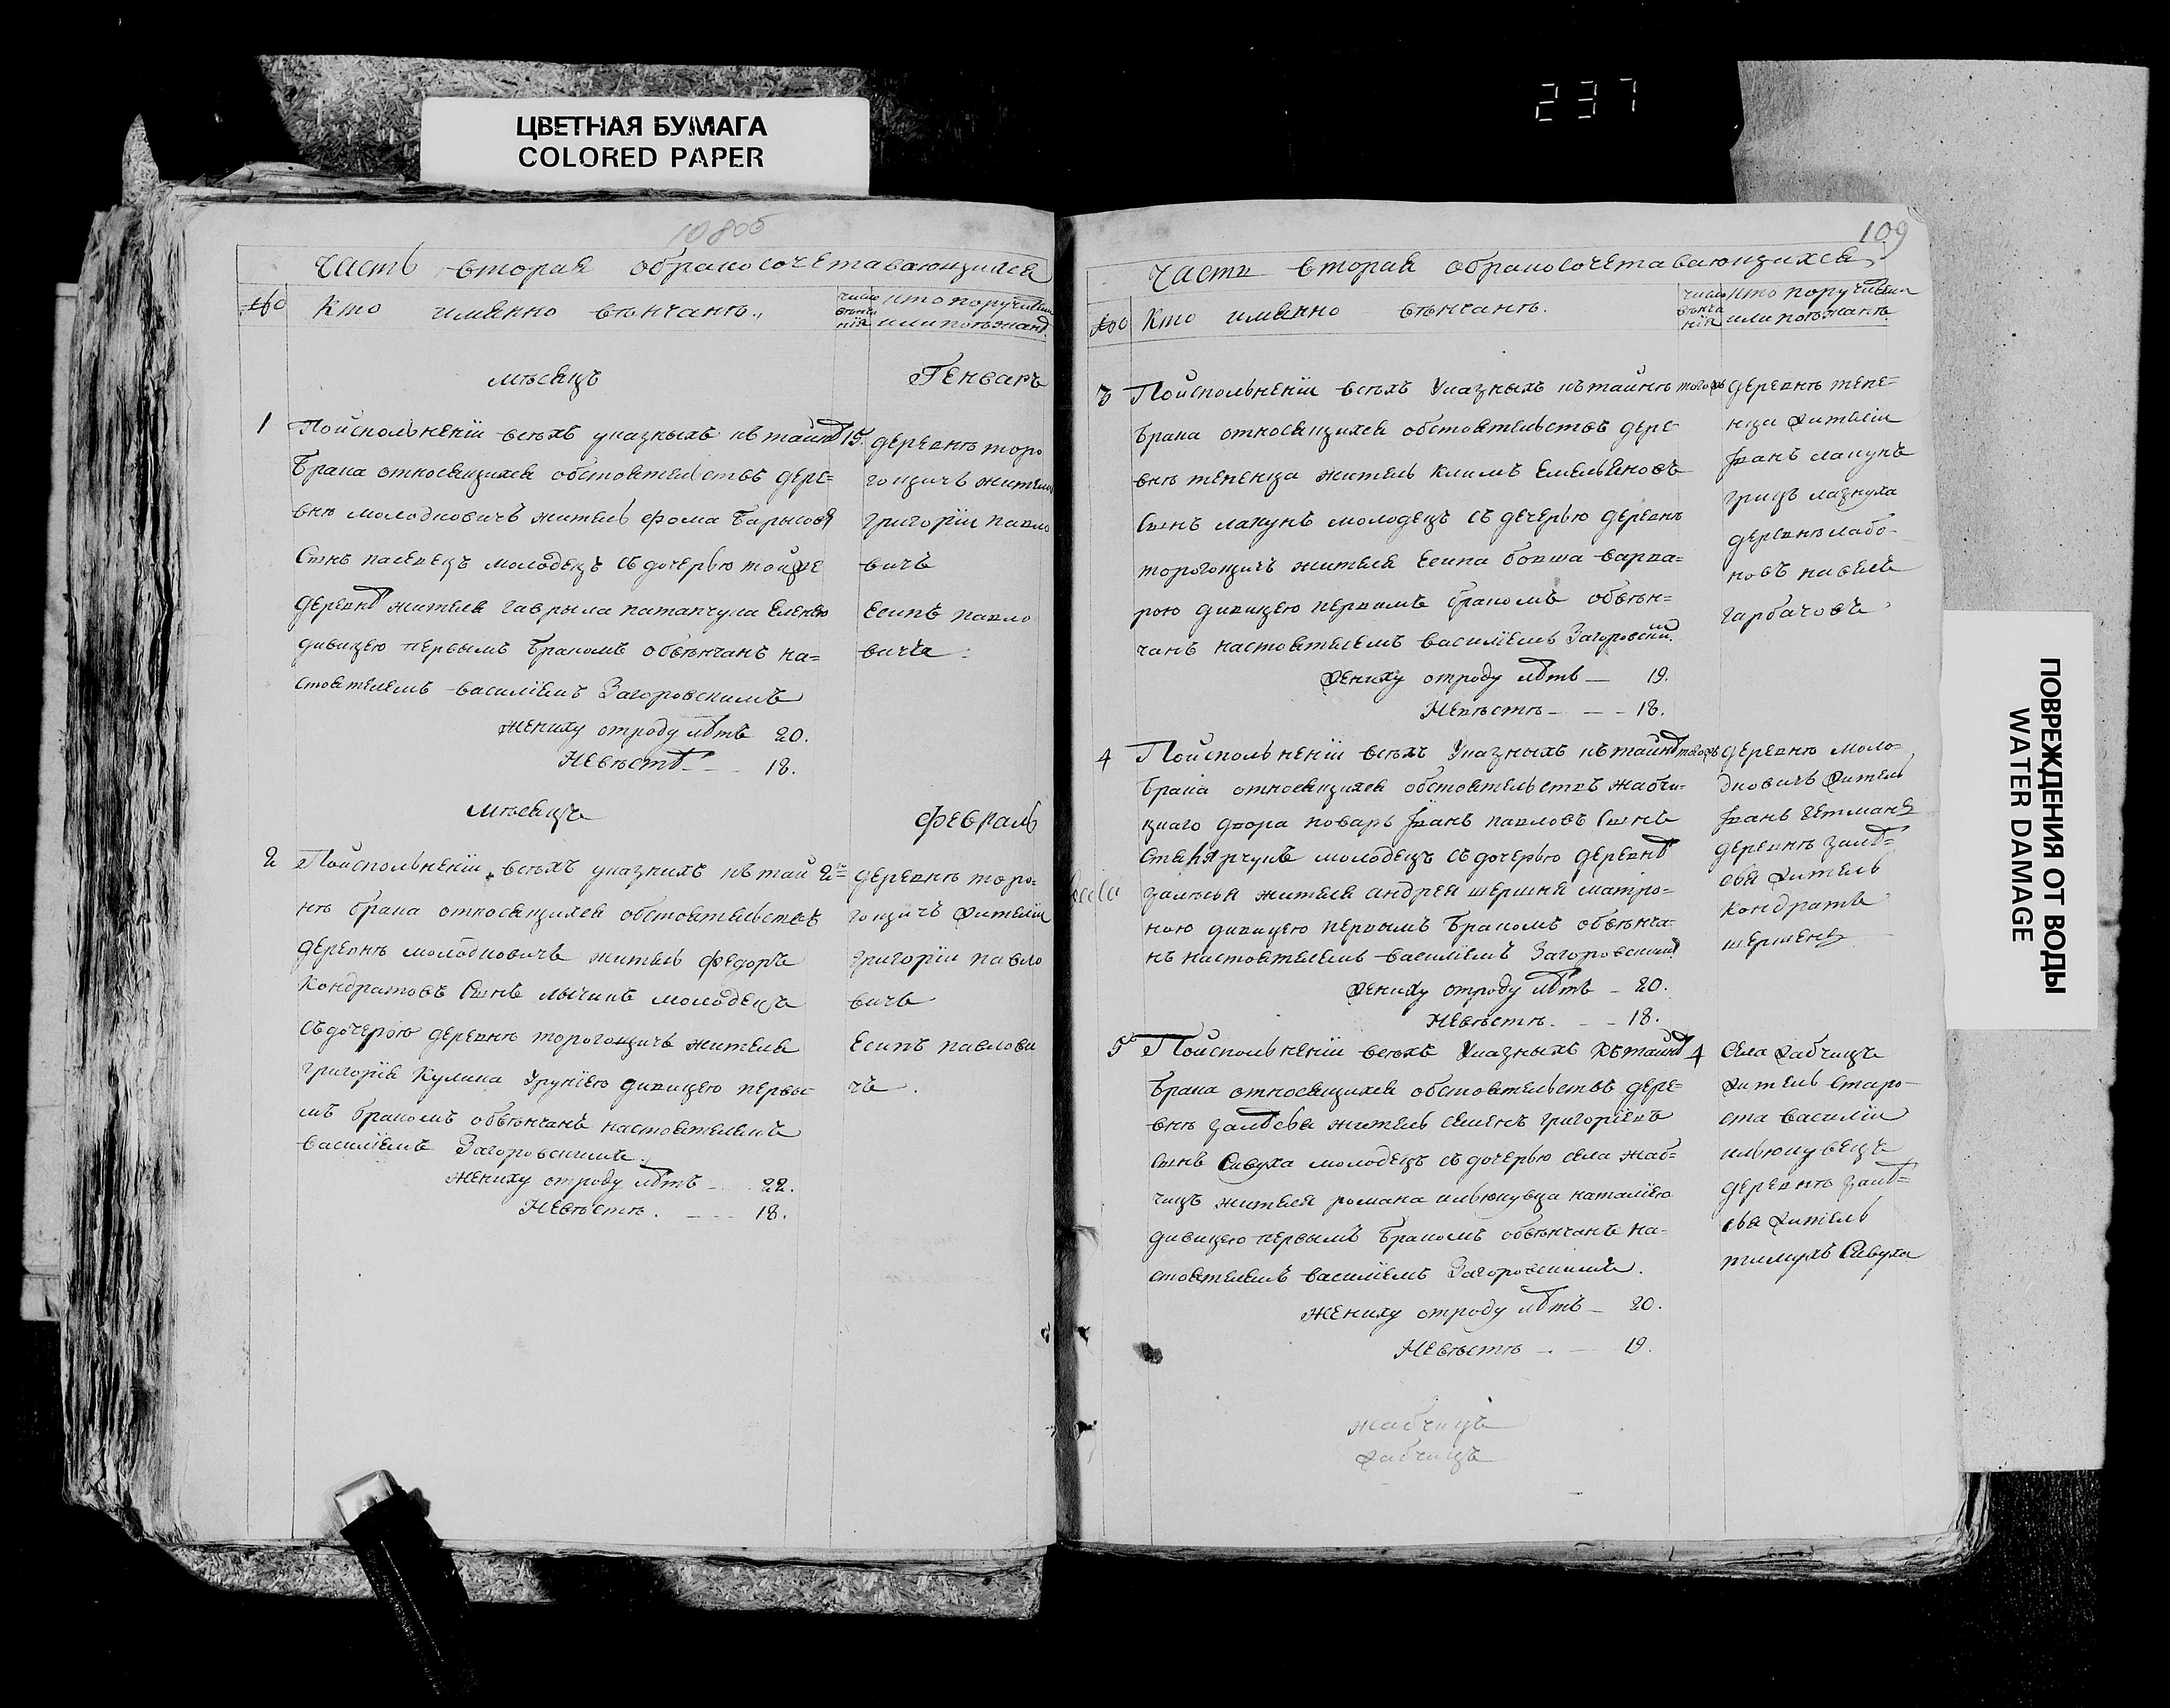 237
ЦВЕТНАЯ БУМАГА
COLORED PAPER
108об
часть вторая обракосочетавающихся
№ Кто имянно вѣнчанъ. число вѣнча нія кто поручители или поѣзжанѣ
мѣсяцъ Генварь
1 Поисполненіи всѣхъ указныхъ кътайнѣ 15.
брака относящихся обстоятелствъ дере=
внѣ молодковичъ житель фома барысовъ
сынъ пасѣвецъ молодецъ съ дочерью тойже
деревнѣ жителя гаврыла патапчука Еленою
дивицею первымъ бракомъ обвѣнчанъ на=
стоятелемъ василіемъ Загоровскимъ
жениху отроду лѣтъ 20.
Невѣстѣ 18.
деревнѣ торо
гощичъ жители
григорій павло
вичъ
Есипъ павло
вичъ:
мѣсяцъ февраль
2 Поисполненіи всѣхъ указнихъ къ тай 2
нѣ брака относящихся обстоятелствъ
деревнѣ молодковичъ житель федоръ
Кондратовъ сынъ лычикъ молодецъ
съдочерою деревнѣ торогощичъ жителя
григорія Кулика дивицею первы
мъ бракомъ обвѣнчанъ настоятелемъ
василіемъ Загоровскимъ.
жениху отроду лѣтъ 22.
Невѣстѣ. 18.
деревнѣ торо=
гощичъ жители
григорій павло
вичъ
Есипъ павлови
чъ.
109
часть вторая обракосочетавающихся
№ Кто имянно вѣнчанъ. число вѣнча нія кто поручители или поѣзжанѣ
3 Поисполненіи всѣхъ Указныхъ кѣтайнѣ тогожъ
брака относящихся обстоятельствъ дере=
внѣ тепенца житель климъ Емельяновъ
сынъ лапунъ молодецъ съ дечерью деревнѣ
торогощичъ жителя Есипа бовша варва=
рою дивицею первимъ бракомъ обвѣн=
чанъ настоятелемъ василіемъ Загоровский.
жениху отроду лѣтъ — 19.
Невѣстѣ — 18.
деревнѣ тепе=
нца жители
Іванъ лапунъ
грицъ лазнуха
деревнѣ лабо=
новъ
гарбачовъ
4 Поисполненіи всѣхъ Указныхъ кѣтайнѣ тогожъ
брака относящихся обстоятельствъ жабчи=
цкаго двора поваръ Іванъ павловъ сынъ
молодецъ съ дочерью деревнѣ
залѣсья жителя андрея шершня матро=
ною дивицею первымъ бракомъ обвѣнча=
нъ настоятелемъ василіемъ Загоровскимъ
жениху отроду лѣтъ — 20.
Невѣстѣ. — 18.
деревнѣ моло=
дковичъ житель
Іванъ Гетманъ
деревнѣ залѣ=
сья житель
Кондратъ
шершень
5 Поисполненіи всѣхъ Указныхъ кѣтайнѣ 4
брака относящихся обстоятельствъ дере=
внѣ залѣсья житель семенъ григоріевъ
сынъ Сивуха молодецъ съ дочерью села жаб=
чицъ жителя романа илюкувца наталіею
дивицею первымъ бракомъ обвѣнчанъ на=
стоятелемъ василіемъ Загоровскимъ.
жениху отроду лѣтъ — 20.
Невѣстѣ — 19.
Села жабчицъ
житель старо=
ста василій
илюкувецъ
деревнѣ залѣ=
сья житель
Сивуха
жабчицъ
жабчицъ
ПОВРЕЖДЕНИЯ ОТ ВОДЫ
WATER DAMAGE